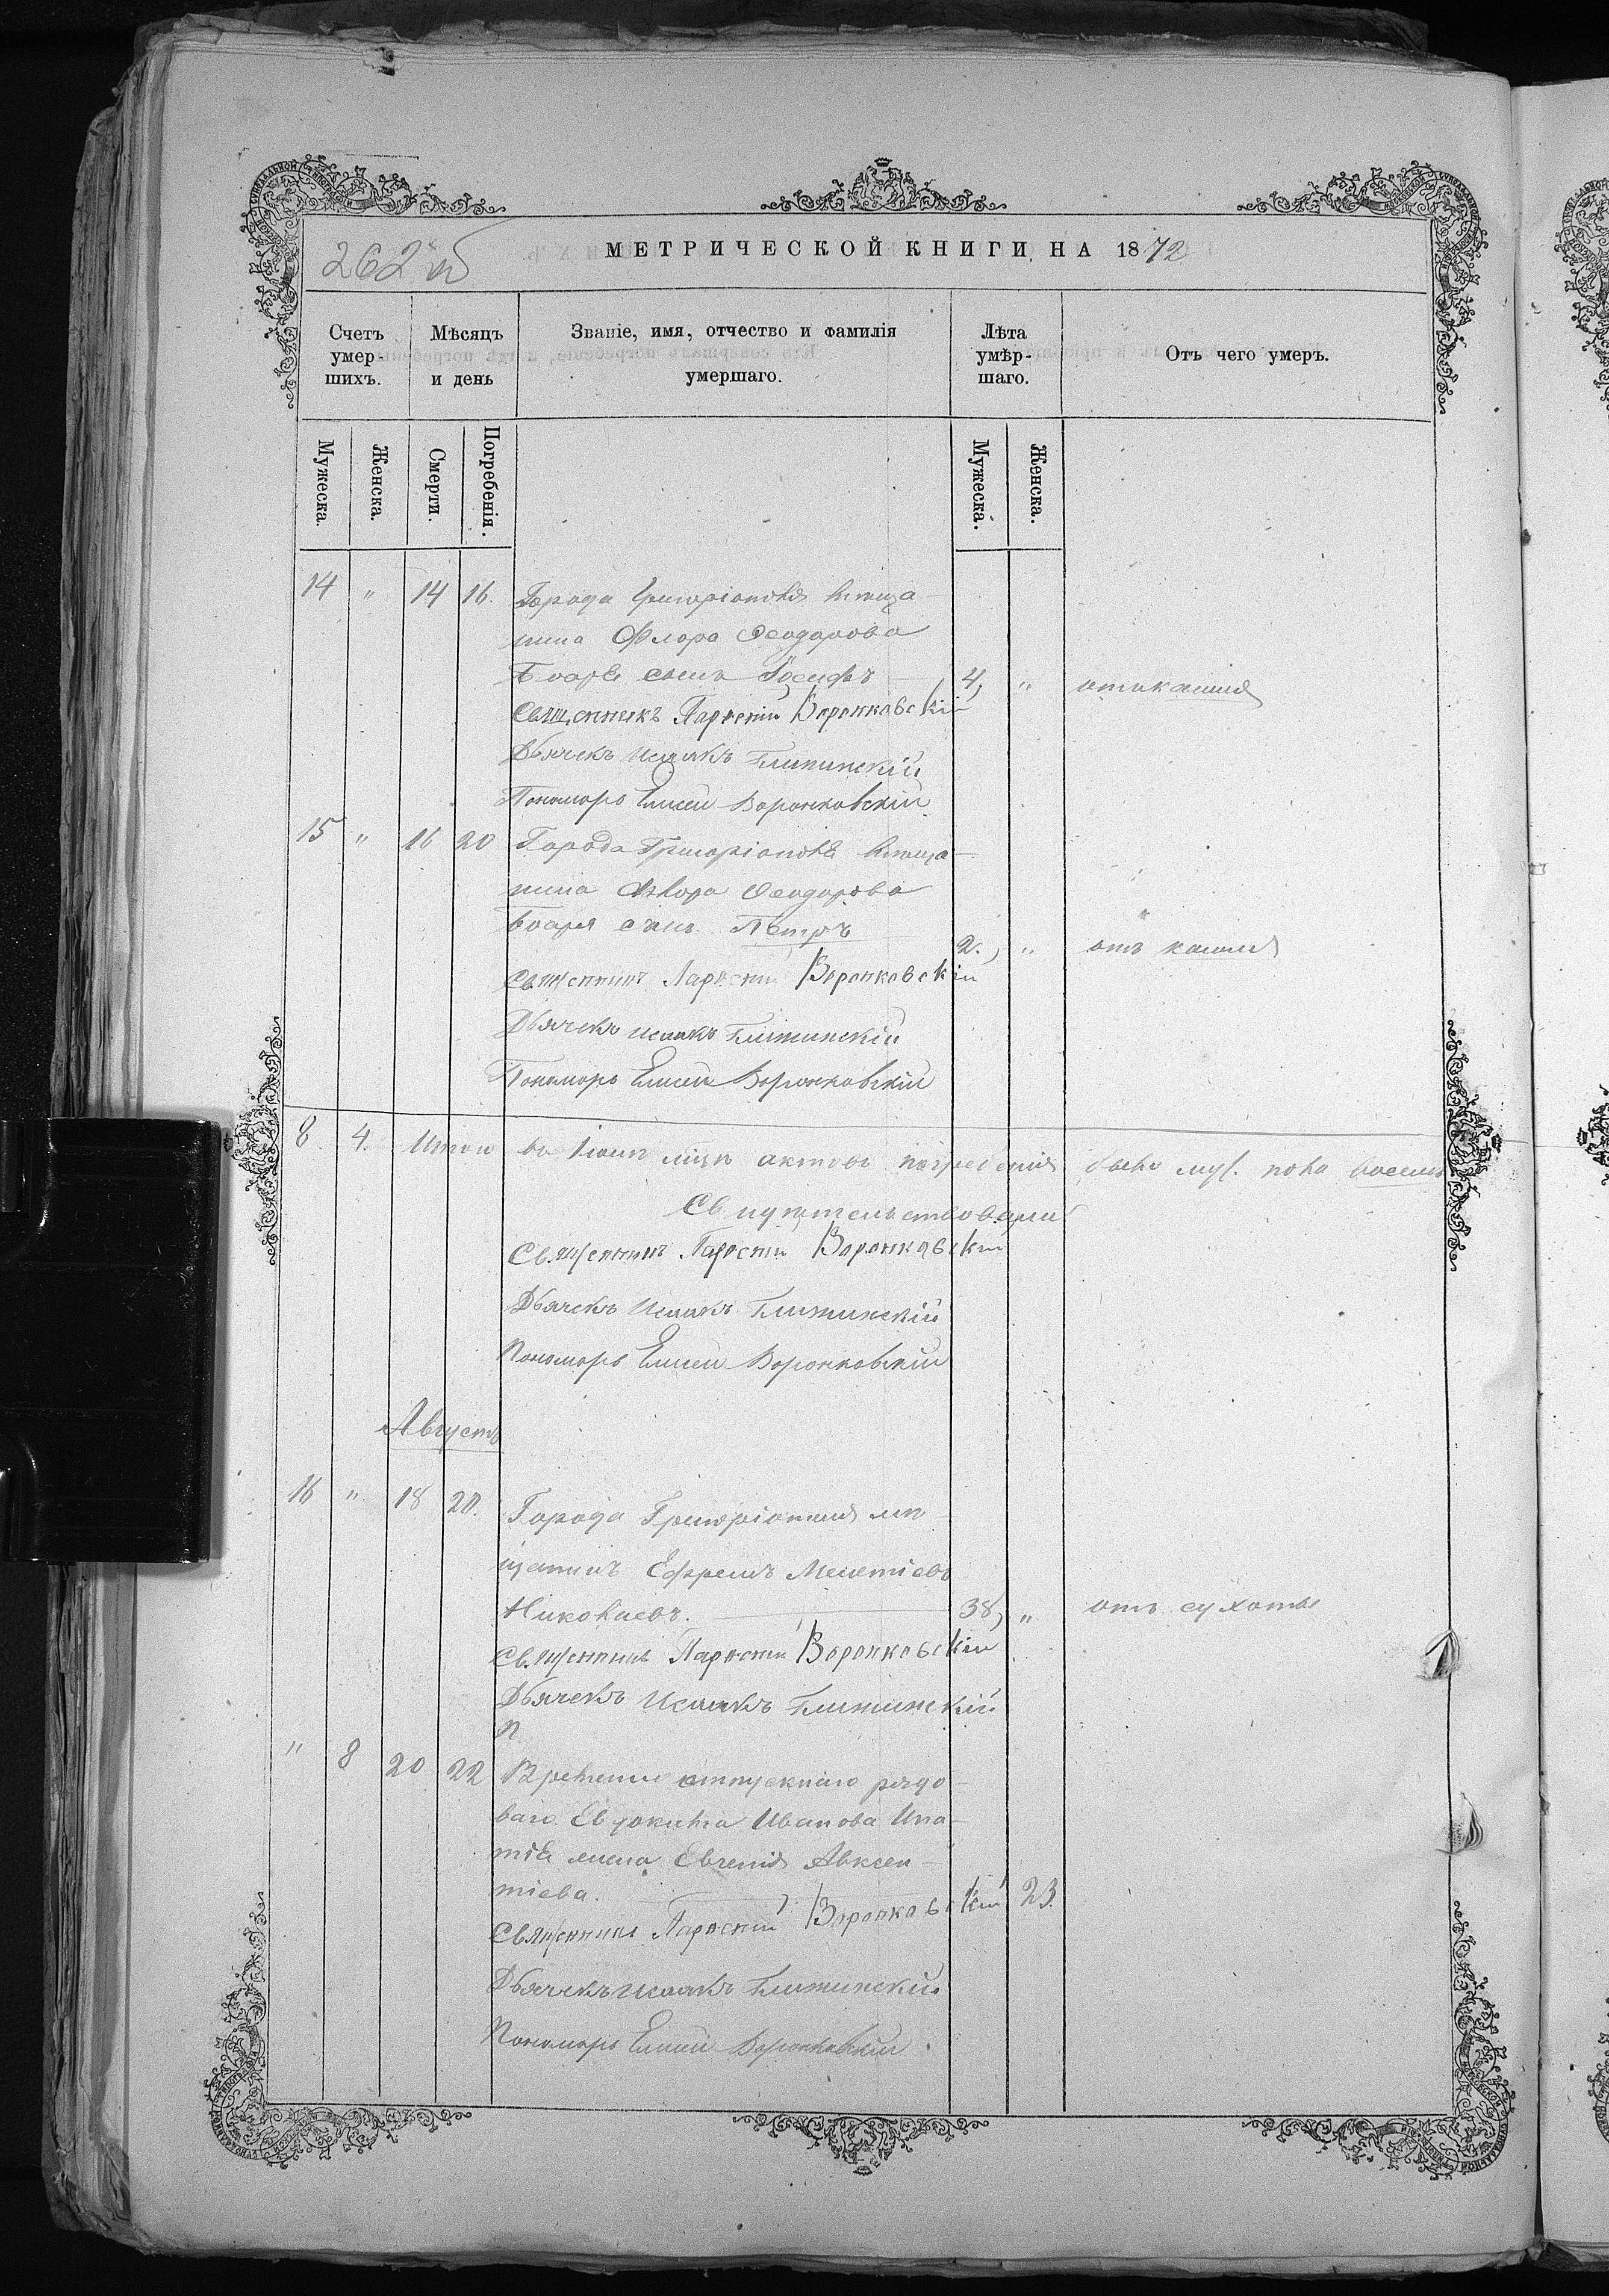 262 об
МЕТРИЧЕСКОЙ КНИГИ НА 1872
Счетъ умер- шихъ.
Мѣсяцъ и день
Званіе, имя, отчество и фамилія умершаго.
Лѣта умѣр- шаго.
Отъ чего умеръ.
Мужеска. Женска. Смерти. Погребенія. Мужеска. Женска.
14 " 14 16. Города Григоріополя мѣща-
нина Флора Ѳеодорова
Боаръ сынъ Іосифъ 4, " отъ кашля
Священникъ Воронковскій
Дьячекъ Исаакъ
Пономарь Елисей Воронковскій
15 " 16 20 Города Григоріополя мѣща-
нина Флора Ѳеодорова
Боаря сынъ Петръ 2., " отъ кашля
Священникъ Воронковскій
Дьячекъ Исаакъ
Пономарь Елисей Воронковскій
8. 4. Итого въ Іюлѣ мцѣ актовъ погребенія было муж. пола восемь
Свидѣтельствовали
Священникъ Воронковскій
Дьячекъ Исаакъ
Пономарь Елисей Воронковскій
Августъ
16 " 18 20. Города Григоріополя мѣ-
щанинъ Ефремъ Мелетіевъ
Николаевъ. 38, " отъ сухоты
Священникъ Воронковскій
Дьячекъ Исаакъ
П
" 8 20 22 Временно отпускнаго рядо-
ваго Евдокима Иванова Ипа-
тія жена Евгенія Авксен-
тіева. 23.
Священникъ Воронковскій
Дьячекъ Исаакъ
Пономарь Елисей Воронковскій.